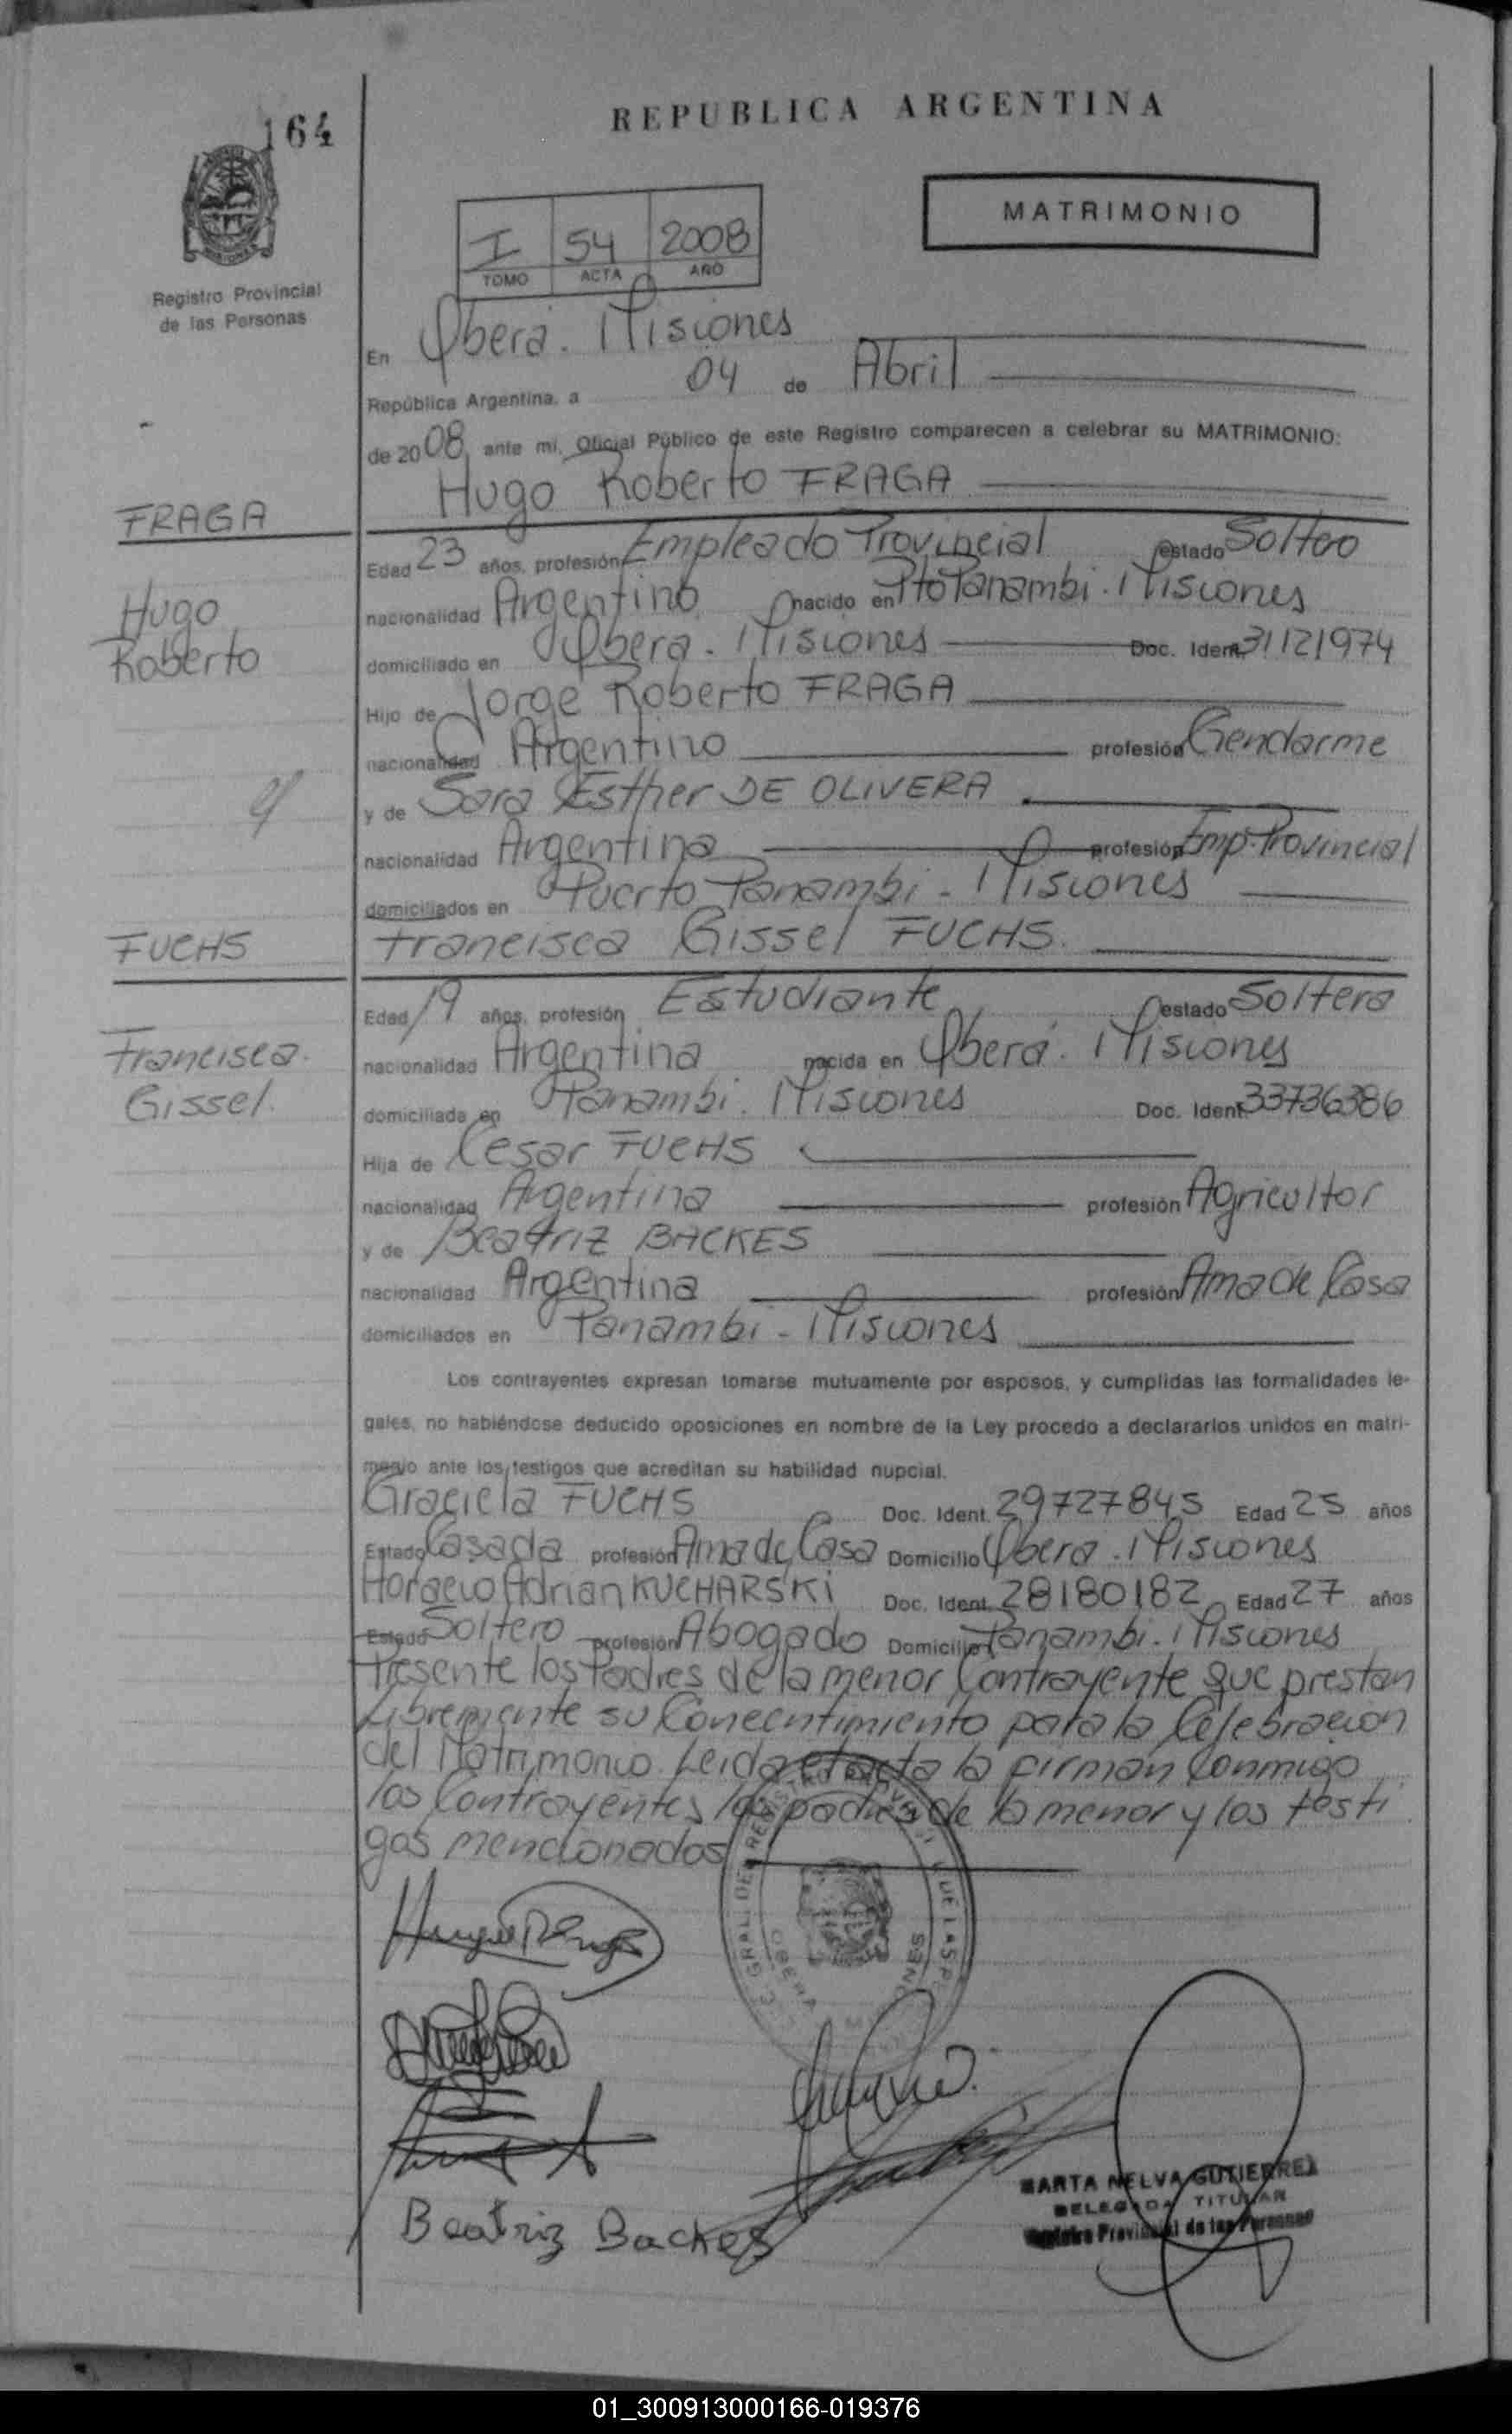 164
REPUBLICA ARGENTINA
MATRIMONIO
I 54 2008
TOMO ACTA AÑO
Registro Provincial
de las Personas
En Oberá. Misiones
República Argentina, a 04 de Abril
de 2008, ante mi, Oficial Público de este Registro comparecen a celebrar su MATRIMONIO:
Hugo Roberto FRAGA
FRAGA
Edad 23 años, profesión Empleado Provincial estado Soltero
Hugo
nacionalidad Argentino nacido en Pto Panambi. Misiones
Roberto
domiciliado en Oberá. Misiones Doc. Ident. 31121974
Hijo de Jorge Roberto FRAGA
nacionalidad Argentino profesión Gendarme
y de Sara Esther DE OLIVERA
nacionalidad Argentina profesión Emp. Provincial
domiciliados en Puerto Panambi - Misiones
FUCHS
Francisca Gissel FUCHS.
Edad 19 años, profesión Estudiante estado Soltera
Francisca.
nacionalidad Argentina nacida en Oberá. Misiones
Gissel.
domiciliada en Panambi. Misiones Doc. Ident. 33736386
Hija de Cesar FUCHS
nacionalidad Argentina profesión Agricultor
y de Beatriz BACKES
nacionalidad Argentina profesión Ama de Casa
domiciliados en Panambi - Misiones
Los contrayentes expresan tomarse mutuamente por esposos, y cumplidas las formalidades le-
gales, no habiéndose deducido oposiciones en nombre de la Ley procedo a declararlos unidos en matri-
monio ante los testigos que acreditan su habilidad nupcial.
Graciela FUCHS Doc. Ident. 29727845 Edad 25 años
Estado Casada profesión Ama de Casa Domicilio Oberá. Misiones
Horacio Adrian KUCHARSKi Doc. Ident. 28180182 Edad 27 años
Estado Soltero profesión Abogado Domicilio Panambi. Misiones
Presente los Padres de la menor Contrayente que prestan
Libremente su Concentimiento para la Celebracion
del Matrimonio. Leida el acta la firman Conmigo
los Contrayentes, los padres de la menor y los testi
gos mencionados
Beatriz Backes
MARTA NELVA GUTIERREZ
DELEGADA TITULAR
Registro Provincial de las Personas
01_300913000166-019376